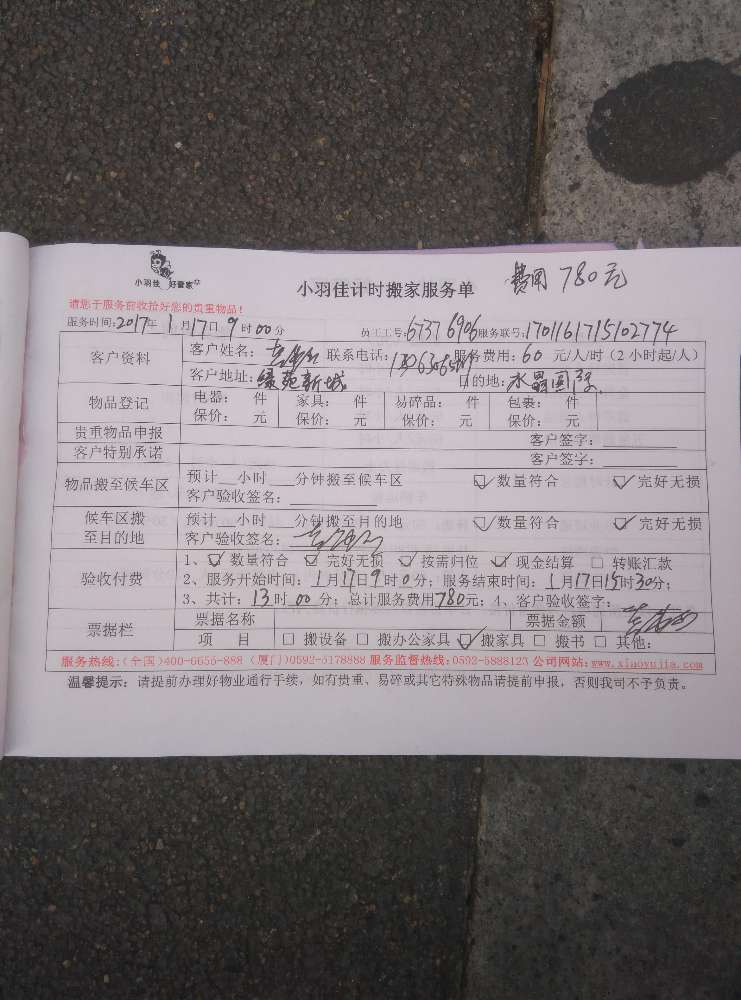 小羽佳 好管家
小羽佳计时搬家服务单 费用 780元
请您于服务前收拾好您的贵重物品！
服务时间:2017年 1月17日 9时00分 员工工号:6737 6906 服务联号:1701161715102774
客户资料
客户姓名： 联系电话： 服务费用：60 元/人/时（2小时起/人）
客户地址：绿苑新城 目的地：水晶国际
物品登记
电器： 件 家具： 件 易碎品： 件 包裹： 件
保价： 元 保价： 元 保价： 元 保价： 元
贵重物品申报 客户签字：
客户特别承诺 客户签字：
物品搬至候车区
预计__小时___分钟搬至候车区 ☑数量符合 ☑完好无损
客户验收签名：
候车区搬至目的地
预计__小时___分钟搬至目的地 ☑数量符合 ☑完好无损
客户验收签名：
验收付费
1、☑数量符合 ☑完好无损 ☑按需归位 ☑现金结算 □转账汇款
2、服务开始时间：1月17日9时0分；服务结束时间：1月17日15时30分；
3、共计：13时00分；总计服务费用780元；4、客户验收签字：
票据栏
票据名称 票据金额
项 目 □搬设备 □搬办公家具 ☑搬家具 □搬书 □其他：
服务热线：(全国)400-6655-888 (厦门)0592-5178888 服务监督热线：0592-5888123 公司网站：www.xiaoyujia.com
温馨提示：请提前办理好物业通行手续，如有贵重、易碎或其它特殊物品请提前申报，否则我司不予负责。